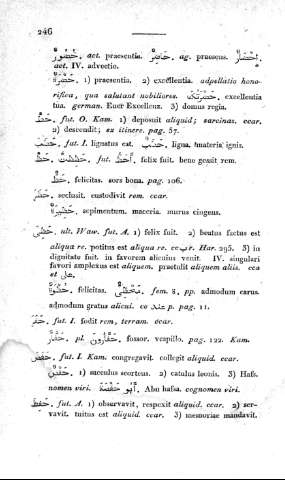 246
حُضُورٌ. act. praesentia. حَاضِرٌ. ag. praesens. إِحْضَارٌ.
act. IV. advectio.
حَضْرَةٌ. 1) praesentia. 2) excellentia. adpellatio hono-
rifica, qua salutant nobiliores. حَضْرَتُكَ. excellentia
tua. german. Euer Excellenz. 3) domus regia.
حَطَّ. fut. O. Kam. 1) deposuit aliquid; sarcinas. ccar.
2) descendit; ex itinere. pag. 57.
حَطَبَ. fut. I. lignatus est. حَطَبٌ. ligna. materia ignis.
حَظَّ. حَظِظْتُ. fut. أَحَظُّ. felix fuit. bene gessit rem.
حَظٌّ. felicitas. sors bona. pag. 106.
حَظَرَ. seclusit. custodivit rem. ccar.
حَظِيرَةٌ. sepimentum. maceria. murus cingens.
حَظِيَ. ult. Waw. fut. A. 1) felix fuit. 2) beatus factus est
aliqua re. potitus est aliqua re. cc ب r. Har. 295. 3) in
dignitate fuit. in favorem alicuius venit. IV. singulari
favori amplexus est aliquem. praetulit aliquem aliis. cca
et على.
حُظْوَةٌ. felicitas. fem. 8, pp. admodum carus.
admodum gratus alicui. cc عند p. pag. 11.
حَفَرَ. fut. I. fodit rem, terram. ccar.
حَفَّارٌ. pl. حَفَّارُونَ. fossor. vespillo. pag. 122. Kam.
حَفَصَ. fut. I. Kam. congregavit. collegit aliquid. ccar.
حَفْصٌ. 1) sacculus scorteus. 2) catulus leonis. 3) Hafs.
nomen viri. أَبُو حَفْصَةَ. Abu hafsa. cognomen viri.
حَفِظَ. fut. A. 1) observavit, respexit aliquid. ccar. 2) ser-
vavit. tuitus est aliquid. ccar. 3) memoriae mandavit.